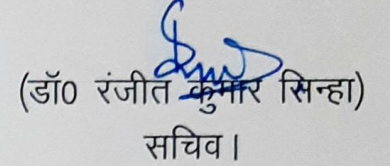 (डॉ0 रंजीत कुमार सिन्हा)
सचिव।